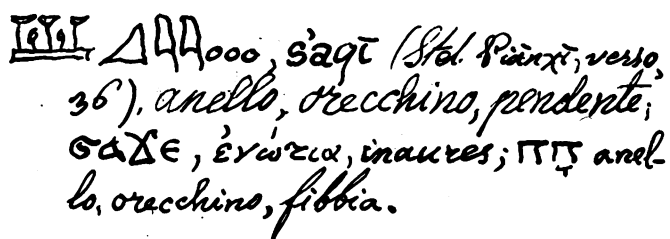 𓆷𓈎𓇋𓇋𓏥, s'aqī (Stel. Piānχī, verso,
36). anello, orecchino, pendente;
ϭⲁϫⲉ, ἐνώτια, inaures; חָח anel-
lo, orecchino, fibbia.